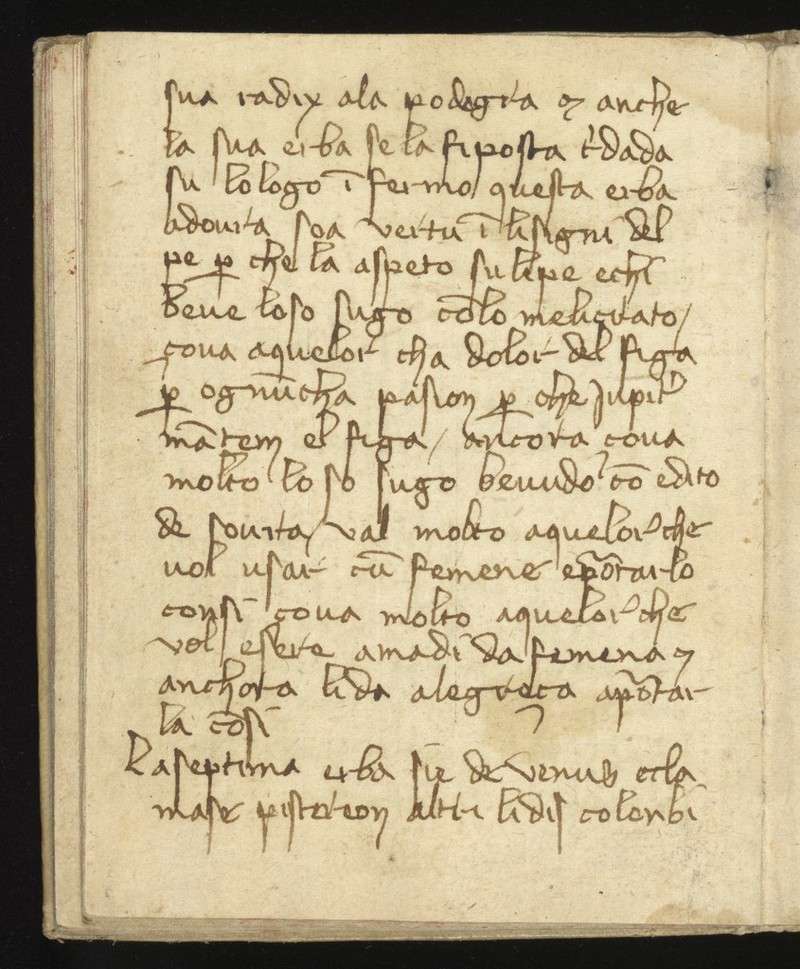 sua radix ala podagra & anche
la sua erba se la fi posta t'dada
su lo logo ī fermo questa erba
adoura soa vertu ī li signi del
pe p̱ che la aspeto su li pe e chi
beue lo so sugo cōlo melicrato /
çoua aquelor cha dolor del figa
p̱ ognūcha pasion p̱ che Jupit'
mātem el figa / ancora çoua
molto lo so sugo beuudo cō edito
de sourta / val molto aquelor che
uol usar cū femene e portarlo
consi çoua molto aquelor che
vol esere amadi da femena &
anchora li da alegreça aportar
la cōsi
La septima erba sie de venus e cla
mase pistereon altri li dis colonbi